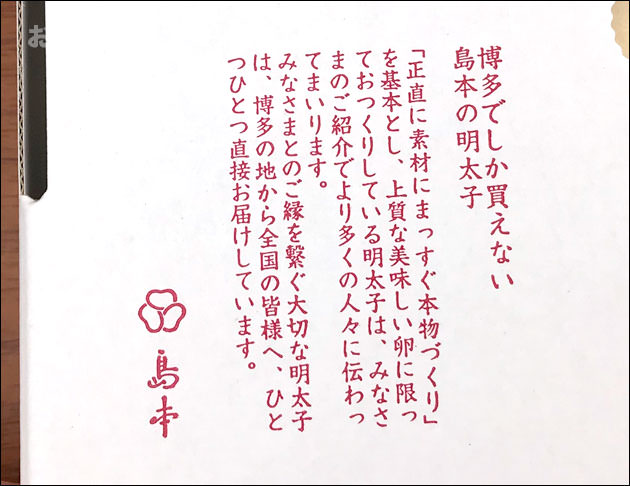 博多でしか買えない
島本の明太子
「正直に素材にまっすぐ本物づくり」
を基本とし、上質な美味しい卵に限っ
ておつくりしている明太子は、みなさ
まのご紹介でより多くの人々に伝わっ
てまいります。
みなさまとのご縁を繋ぐ大切な明太子
は、博多の地から全国の皆様へ、ひと
つひとつ直接お届けしています。
島本